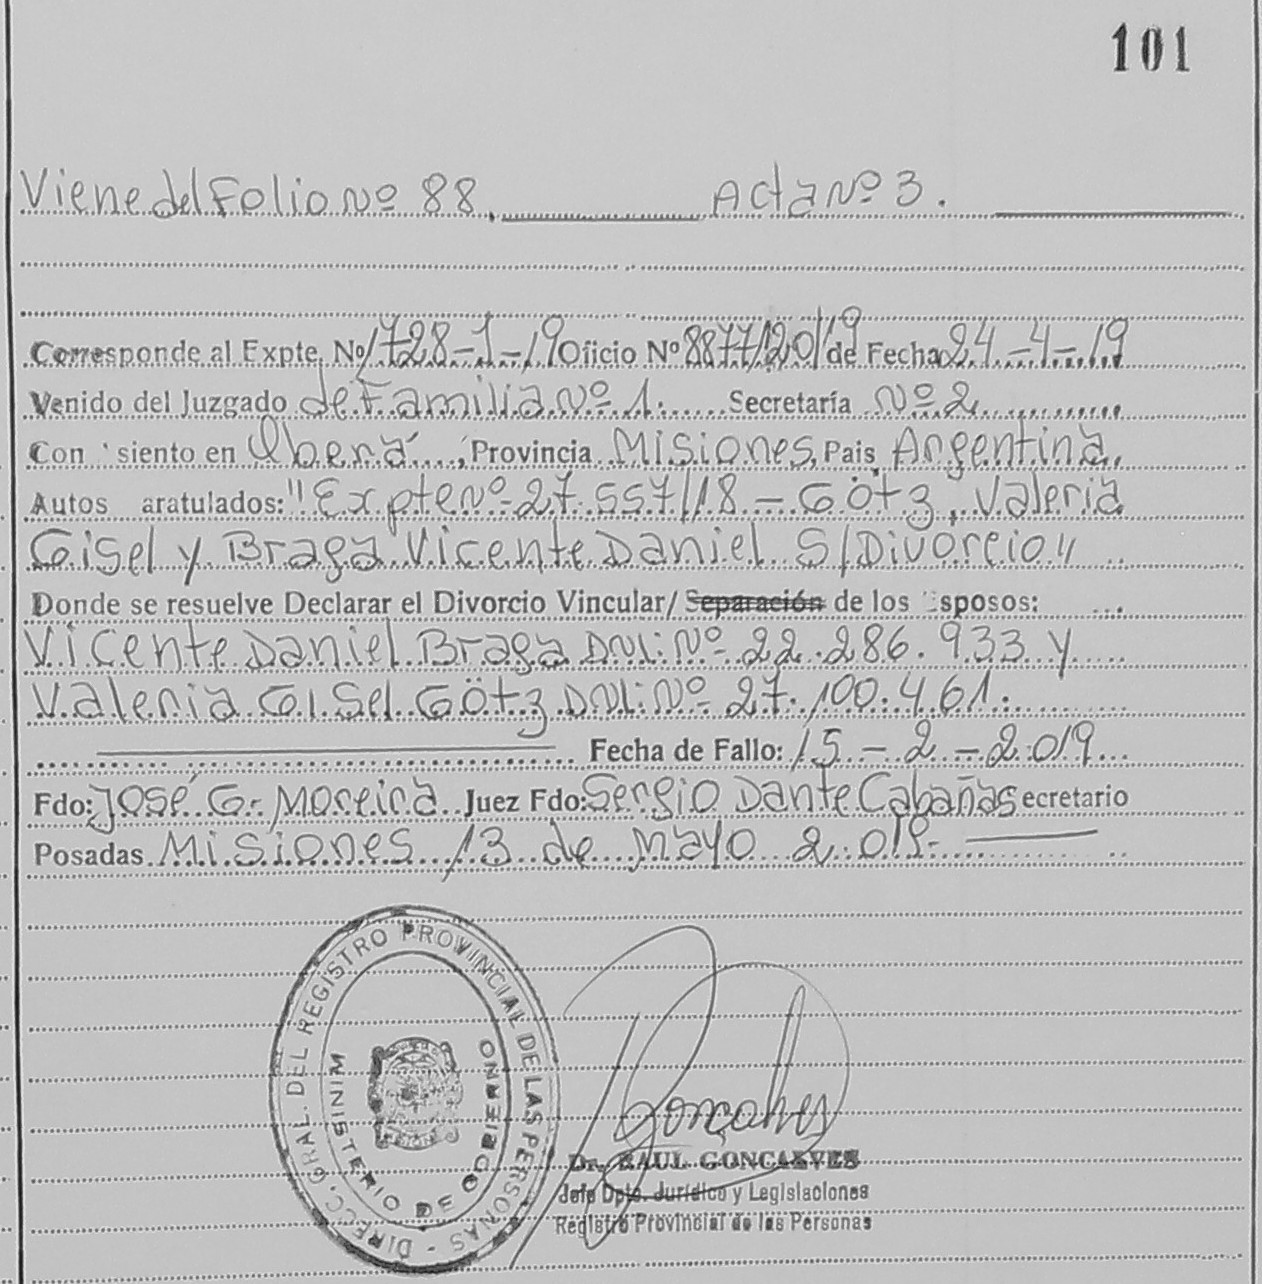 101
Viene del Folio Nº 88. Acta Nº 3.
Corresponde al Expte. Nº 1728-1-19 Oficio Nº 8877/2019 de Fecha 24-4-19
Venido del Juzgado de Familia Nº 1. Secretaría Nº 2
Con siento en Oberá, Provincia Misiones, Pais Argentina.
Autos aratulados: "Expte Nº 27.557/18 - Götz, Valeria
Gisel y Braga Vicente Daniel S/Divorcio"
Donde se resuelve Declarar el Divorcio Vincular/ Separación de los Esposos:
Vicente Daniel Braga DNI: Nº 22.286.933 y
Valeria Gisel Götz DNI: Nº 27.100.461.
Fecha de Fallo: 15-2-2019
Fdo: José G. Moreira Juez Fdo: Sergio Dante Cabañas Secretario
Posadas Misiones 13 de Mayo 2.019-
DIRECC. GRAL. DEL REGISTRO PROVINCIAL DE LAS PERSONAS -
MINISTERIO DE GOBIERNO
Goncalves
Dr. RAUL GONCALVES
Jefe Dpto. Jurídico y Legislaciones
Registro Provincial de las Personas